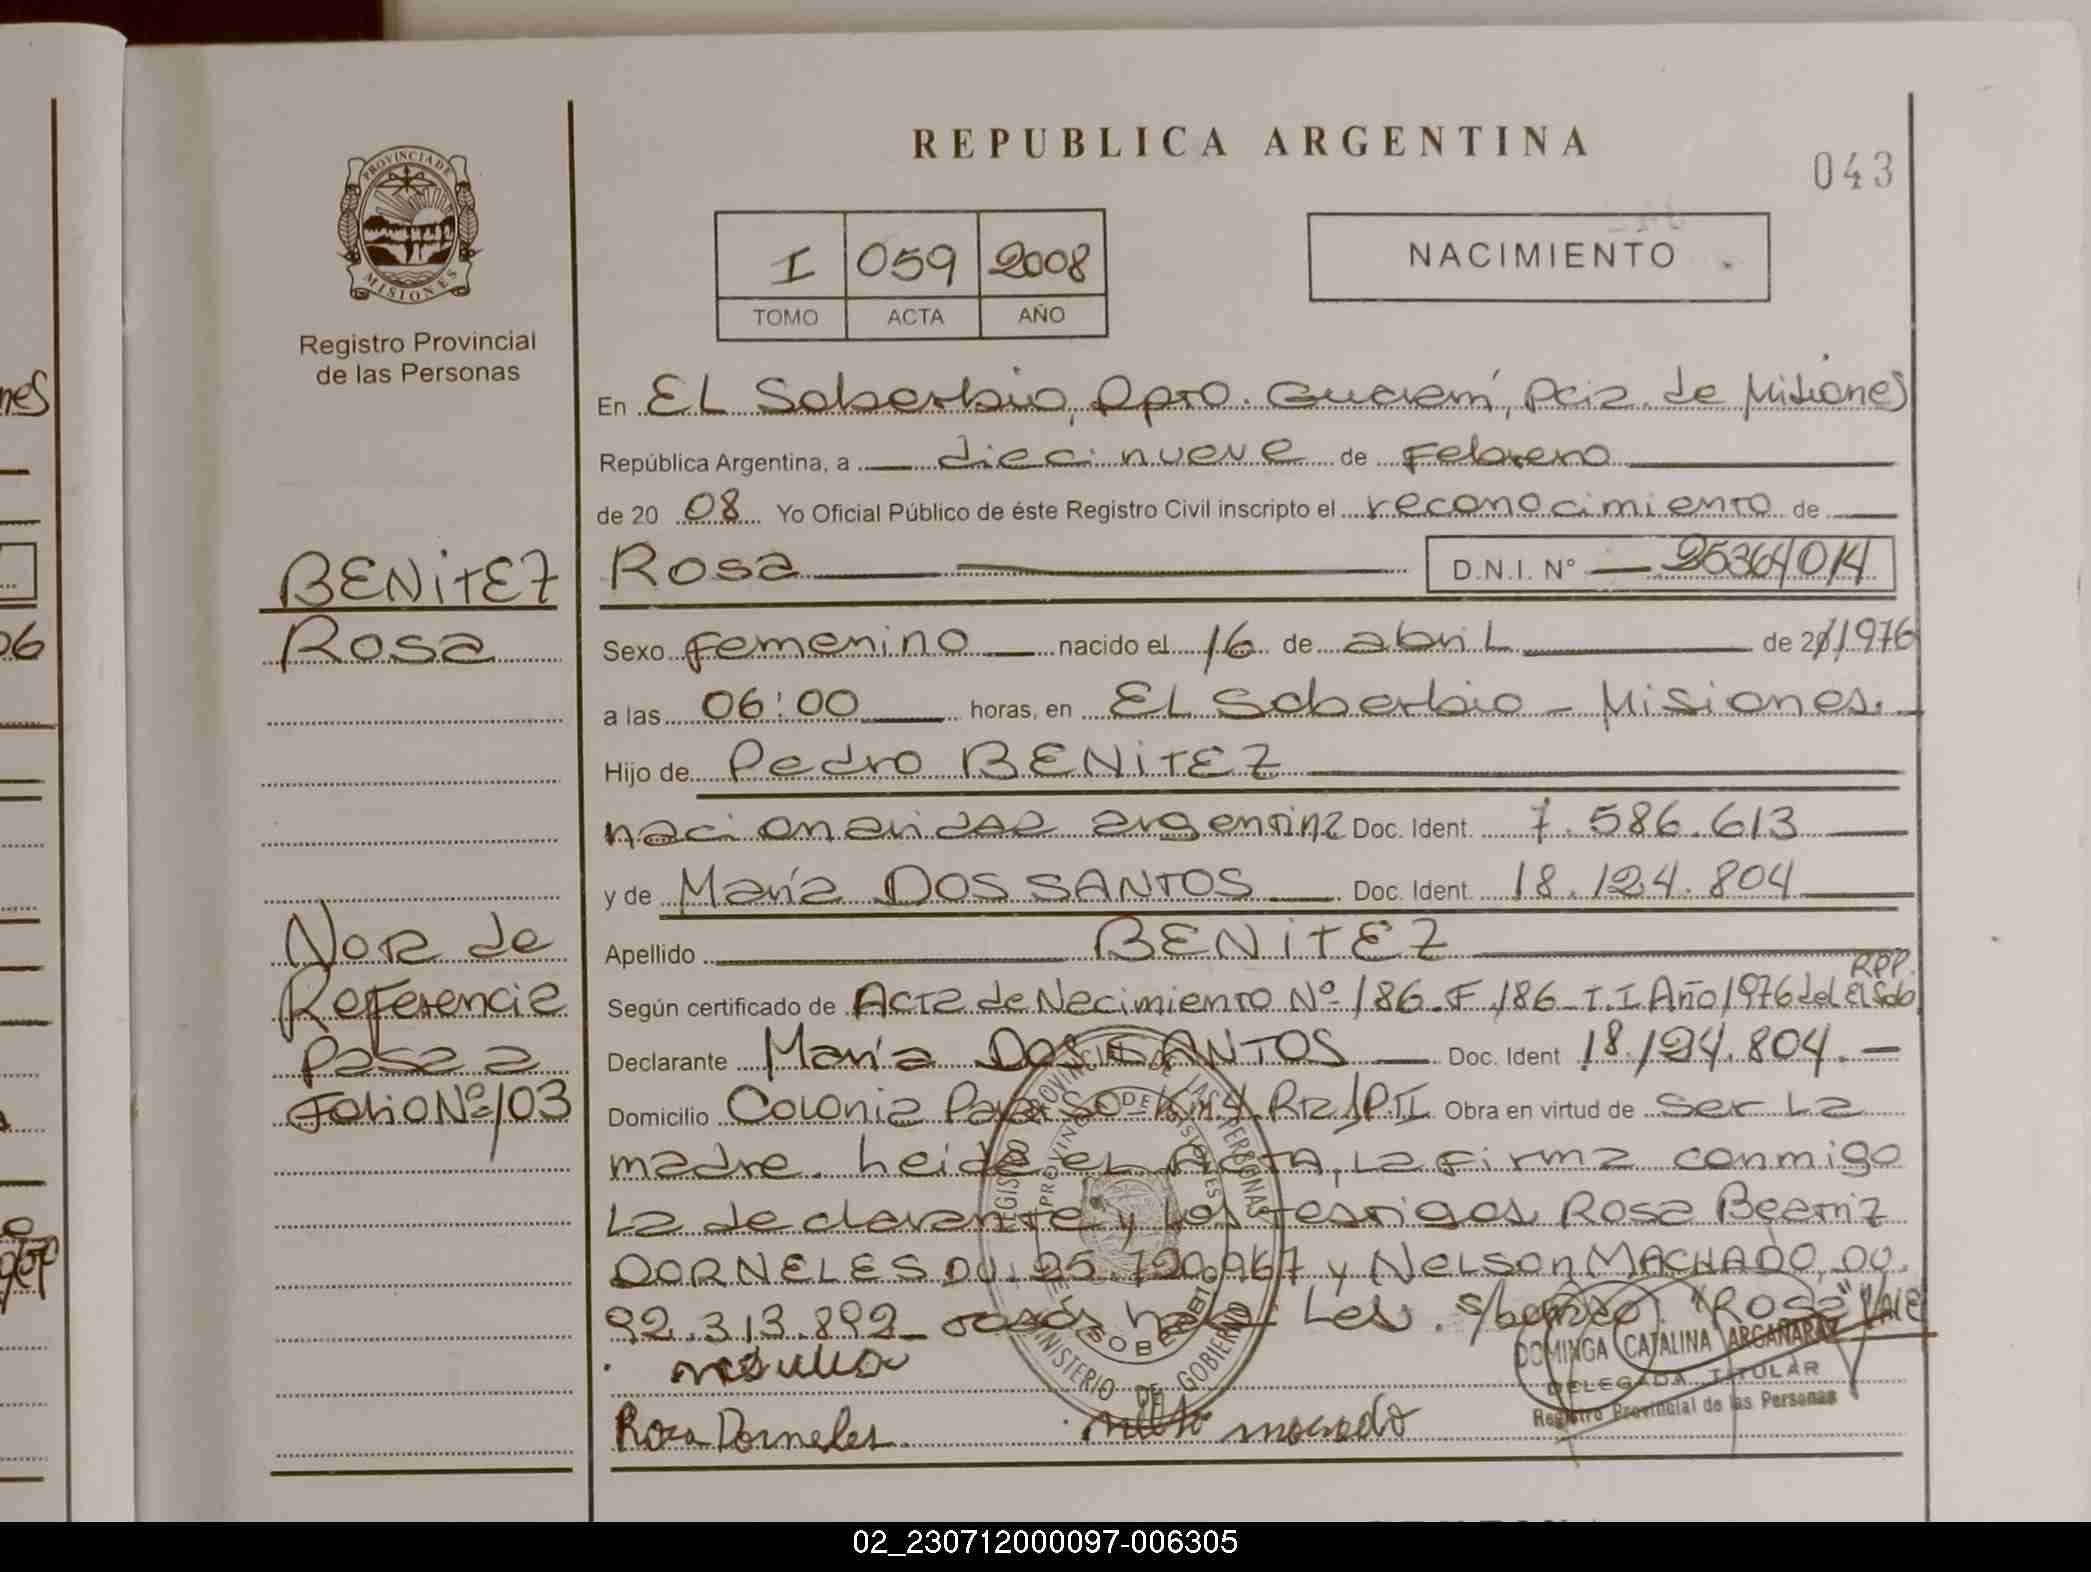 REPUBLICA ARGENTINA
043
PROVINCIA DE
MISIONES
Registro Provincial
de las Personas
I 059 2008
TOMO ACTA AÑO
NACIMIENTO
En EL Soberbio, Dpto. Guaraní, Pcia. de Misiones
República Argentina, a diecinueve de Febrero
de 20 08 Yo Oficial Público de éste Registro Civil inscripto el reconocimiento de
BENITEZ
Rosa
Rosa D.N.I. N° 25364014
Sexo femenino nacido el 16 de abril de 20/1976
a las 06:00 horas, en EL Soberbio - Misiones.
Hijo de Pedro BENITEZ
nacionalidad argentina Doc. Ident. 7.586.613
y de María DOS SANTOS Doc. Ident. 18.124.804
Apellido BENITEZ
Según certificado de Acta de Nacimiento Nº 186-F 186-T.I Año 1976 del RPP. El Sob
Declarante María DOS SANTOS Doc. Ident 18.124.804.-
Domicilio Colonia Paraiso Obra en virtud de ser La
madre. Leida el ACTA, La firma conmigo
La declarante y Los testigos Rosa Beatriz
DORNELES DU. 25.720.967 y Nelson MACHADO, DU.
92.313.892 Les. s/borrado "Rosa" Vale
Nota de
Referencia
Pasa a
Folio Nº 103
Rosa Dorneles
REGISTRO PROVINCIAL DE LAS PERSONAS
MINISTERIO DE GOBIERNO
PROVINCIA DE MISIONES
EL SOBERBIO
DOMINGA CATALINA ARGAÑARAZ
DELEGADA TITULAR
Registro Provincial de las Personas
02_230712000097-006305